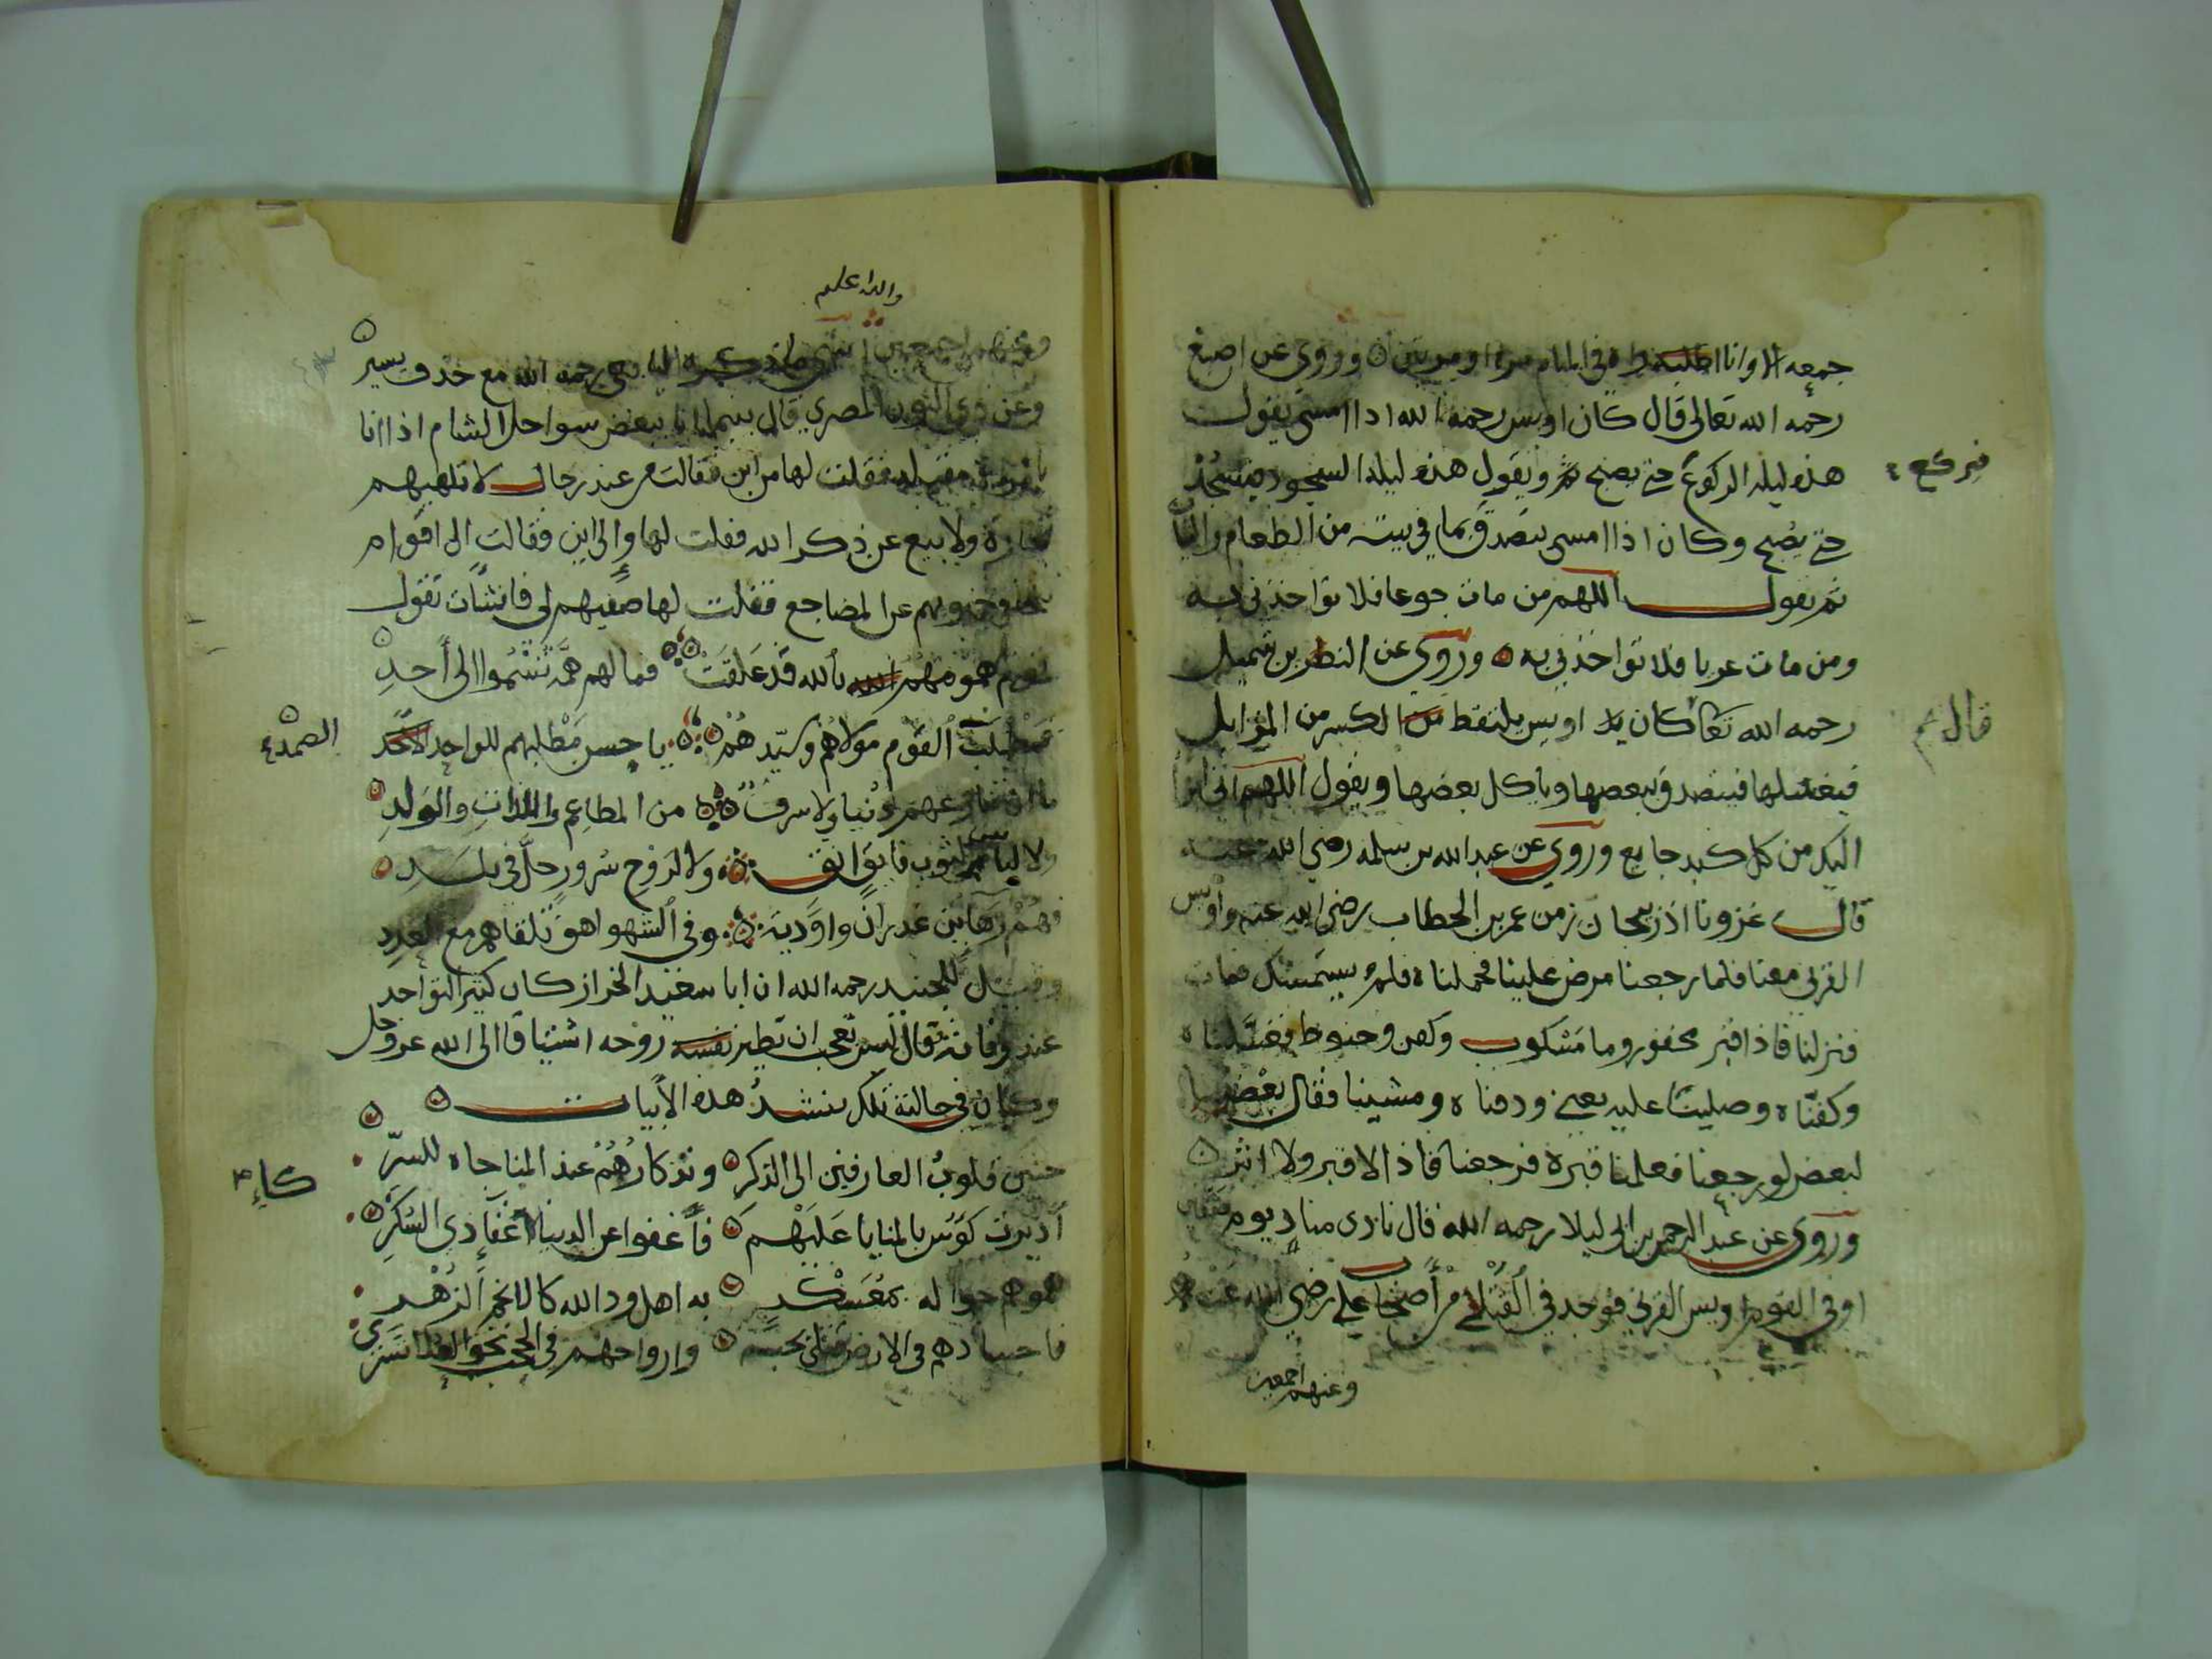 جمعه الا وانا اطلبه في المنام مرة او مرتين وروي عن اصبغ
رحمه الله تعالى قال كان اويس رحمه الله اذا امسى يقول
هذه ليلة الركوع حتى يصبح ويقول هذه ليلة السجود فيسجد
فيركع
حتى يصبح وكان اذا امسى يتصدق بما في بيته من الطعام والثيا
ثم يقول اللهم من مات جوعا فلا تواخذني به
ومن مات عريا فلا تواخذني به وروي عن النظر بن شميل
رحمه الله تعا كان اويس يلتقط الكسر من المزابل
قال
فيغسلها فيتصدق ببعضها وياكل بعضها ويقول اللهم اني ابرأ
اليك من كل كبد جايع وروي عن عبد الله بن سلمه رضي الله عنه
قال غزونا اذربيجان زمن عمر بن الخطاب رضي الله عنه واويس
القرني معنا فلما رجعنا مرض علينا فحملناه فلم يستمسك فمات
فنزلنا فاذا قبر محفور وما مسكوب وكفن وحنوط فغسلناه
وكفناه وصلينا عليه ودفناه ومشينا فقال بعضنا
لبعض لو رجعنا فعلمنا قبره فرجعنا فاذا لا قبر ولا اثر
وروي عن عبد الرحمن بن ابي ليلا رحمه الله قال نادى مناد يوم صفين
افي القوم اويس القرني فوجد في القتلى من اصحاب علي رضي الله عنه
وعنهم اجمعين
والله اعلم
وعنهم اجمعين انتهى ما ذكره اليافعي رحمه الله مع حذف يسير
وعن ذي النون المصري قال بينما انا ببعض سواحل الشام اذا انا
بامرأة مقبله فقلت لها من اين فقالت من عند رجال لا تلهيهم
تجارة ولا بيع عن ذكر الله فقلت لها والى اين فقالت الى اقوام
تتجافى جنوبهم عن المضاجع فقلت لها صفيهم لي فانشأت تقول
قوم همومهم بالله قد علقت فما لهم همم تسموا الى أحد
فمطلب القوم مولاهم وسيدهم يا حسن مطلبهم للواحد
الصمد
ما ان تنازعهم دنيا ولا سرف من المطاعم واللذات والولد
ولا لباس لثوب فايق انق ولا لروح سرور حل في بلد
فهم رهاين غدران واودية وفي الشهواهق تلقاهم مع العدد
وقيل للجنيد رحمه الله ان ابا سعيد الخراز كان كثير التواجد
عند وفاته فقال ليس بعجب ان تطير روحه اشتياقا الى الله عز وجل
وكان في حالته تلك ينشد هذه الأبيات
حنين قلوب العارفين الى الذكر وتذكارهم عند المناجاه للسر
أديرت كوس بالمنايا عليهم فأغفوا عن الدنيا كاغفاء ذي السكر
همومهم جواله بمعسكر به اهل ود الله كالانجم الزهر
فاجسادهم في الارض قتلى بحبه وارواحهم في الحجب نحو العلا تسري